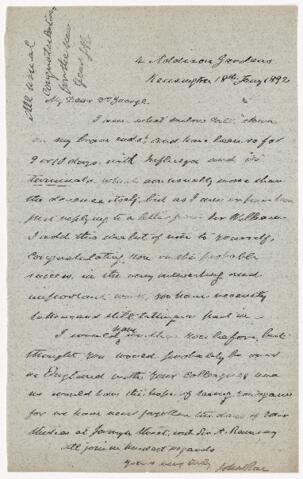 All usual
congratulations
for the new
year JR
4 Addison Gardens
Kensington 18th Jany 1892
My Dear Dr George
I am what sailors call "down
on my beam ends", and have been so for
9 or 10 days, with Influenza and its
which are usually worse than
the disease itself, but as I am
just replying to a letter from Sir William
I add this line of note to yourself,
congratulating you on the probable
success, in the very interesting and
important work, you have recently
taken and still taking a part in
I would have you before, but
thought you would probably be over
in England with your colleagues and
we would have the hope of seeing you again
for we have never forgotten the days of your
studies at Jermyn Street, with Sir A. Ramsay
All join in kindest regards
Yours very truly
John Rae